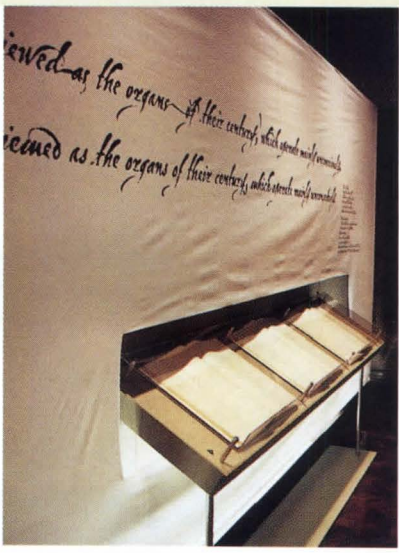 iewed as the organs of their century, which operate mainly unconsciously
iewed as the organs of their century, which operate mainly unconsciously